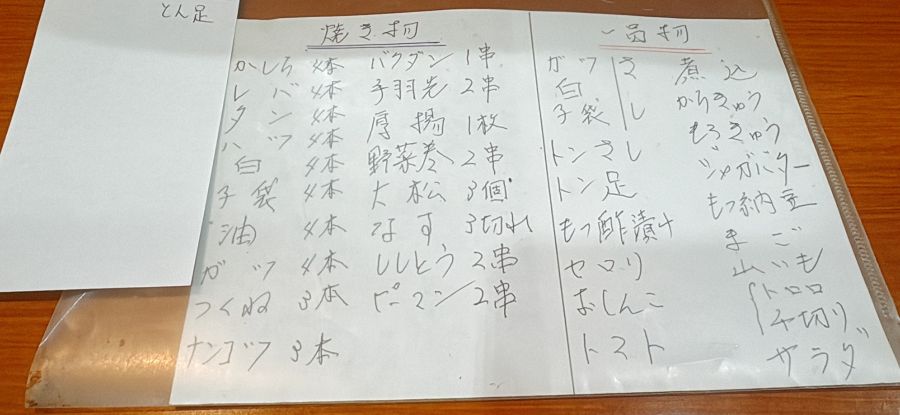 とん足
焼き物
かしら 4本
レバ 4本
タン 4本
ハツ 4本
白 4本
子袋 4本
油 4本
ガツ 4本
つくね 3本
ナンコツ 3本
バクダン 1串
手羽先 2串
厚揚 1枚
野菜巻 2串
大松 3個
なす 3切れ
ししとう 2串
ピーマン 2串
一品物
ガツ
白
子袋
さ
し
トンさし
トン足
もつ酢漬け
セロリ
おしんこ
トマト
煮込
からきゅう
もろきゅう
ジャガバター
もつ納豆
まご
山いも
トロロ
千切り
サラダ